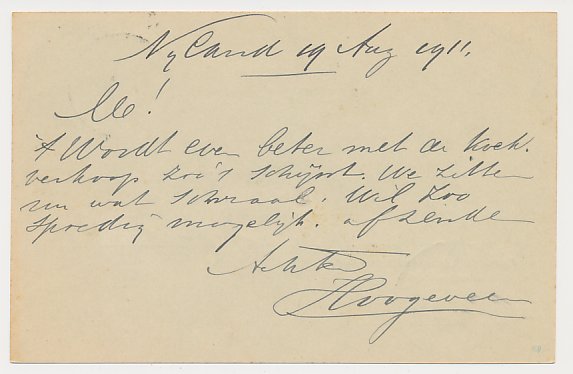 Nyland 19 Aug 1911.
M!
't Wordt even beter met de koek.
verkoop zoo's schijnt. We zitten
nu wat schraal. Wil zoo
spoedig mogelijk. afzende
Hoogeveen